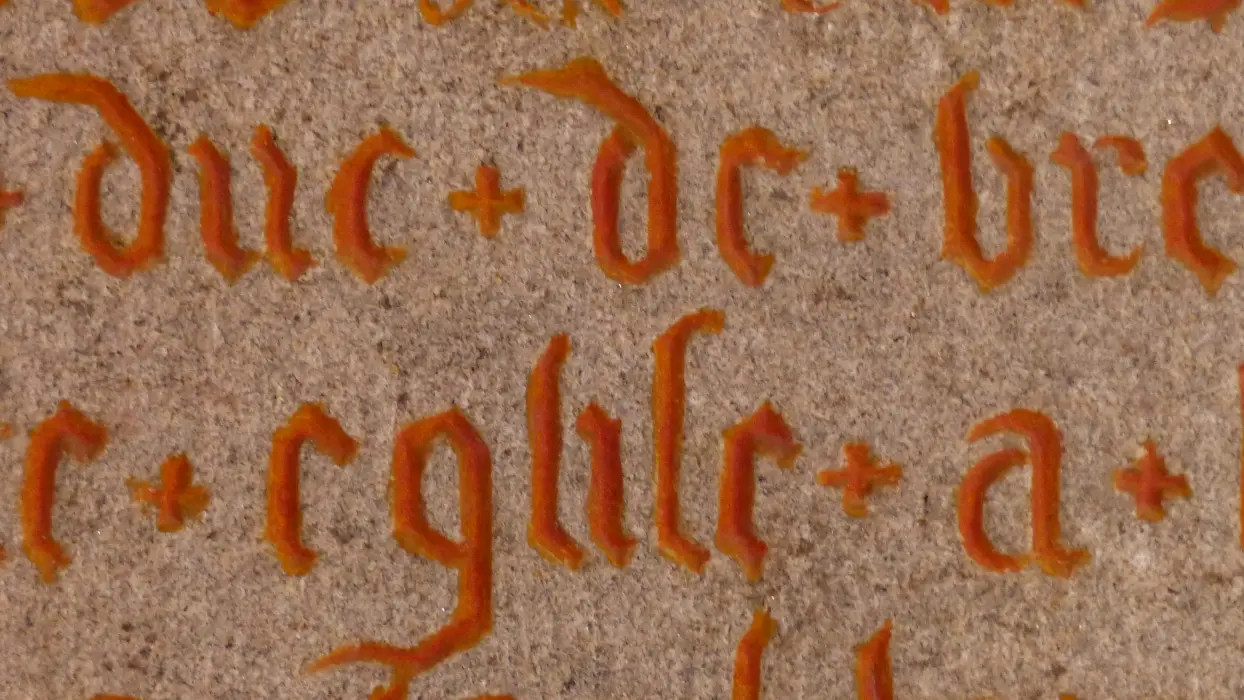 + duc + de + bre
e + egliſe + a +